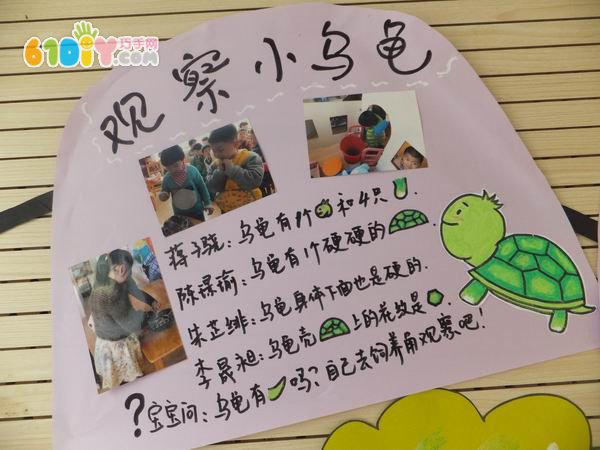 61DIY巧手网
.com
观察小乌龟
蒋子骁：乌龟有1个和4只.
陈璟瑜：乌龟有1个硬硬的.
朱芷绯：乌龟身体下面也是硬的.
李晟昶：乌龟壳上的花纹是.
?宝宝问：乌龟有吗？自己去饲养角观察吧！